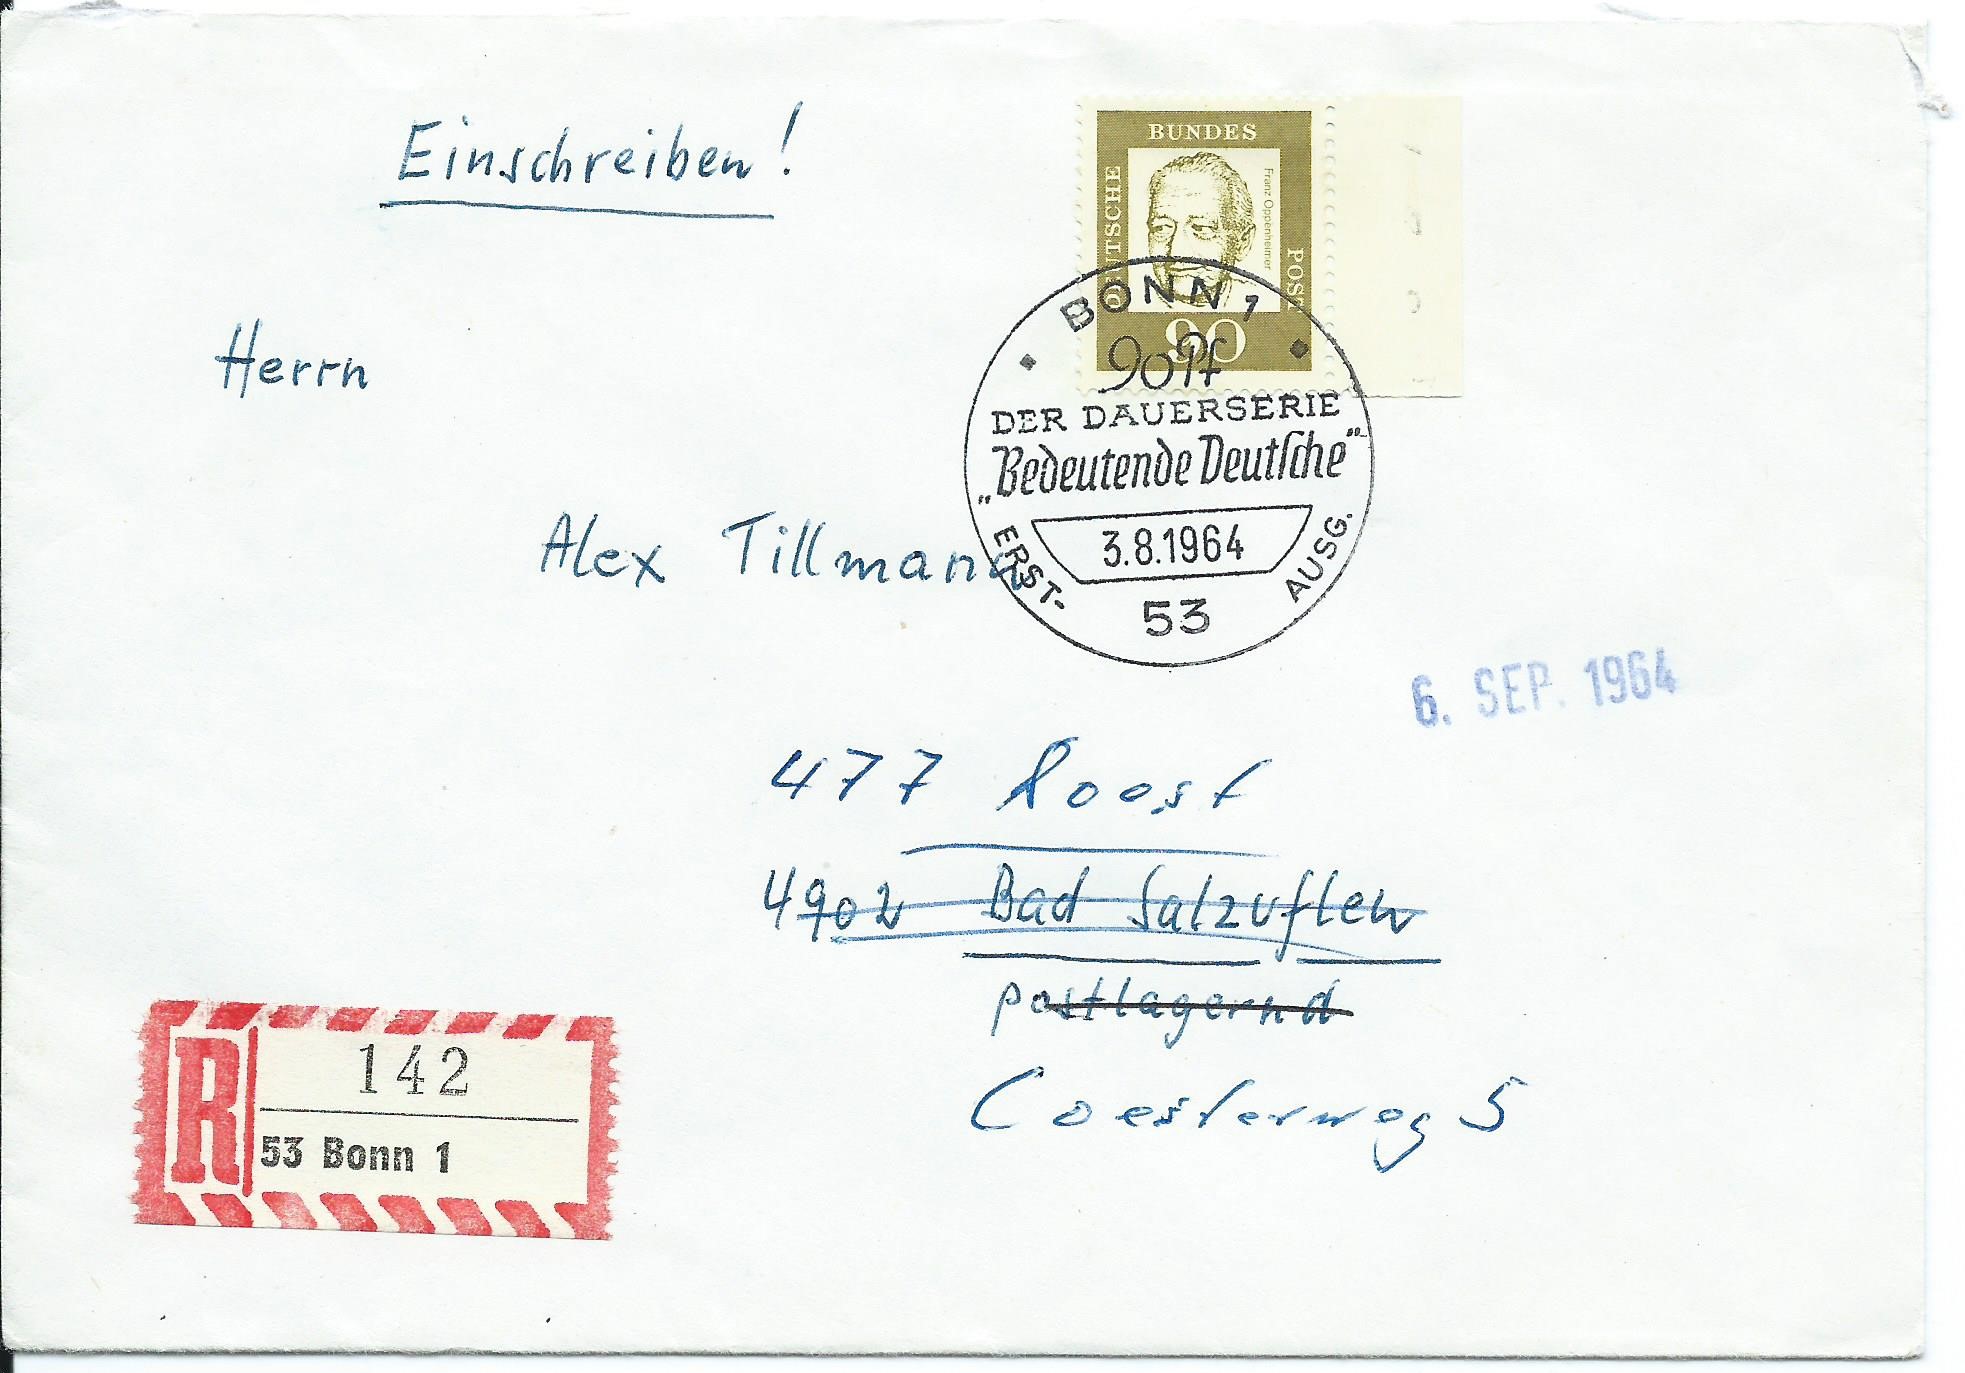 Einschreiben!
BUNDES
DEUTSCHE
POST
Franz Oppenheimer
90
BONN 1
90 Pf
DER DAUERSERIE
„Bedeutende Deutsche“
3.8.1964
ERST-
AUSG.
53
Herrn
Alex Tillmann
6. SEP. 1964
477 Soest
4902 Bad Salzuflen
postlagernd
Coesterweg 5
R
142
53 Bonn 1